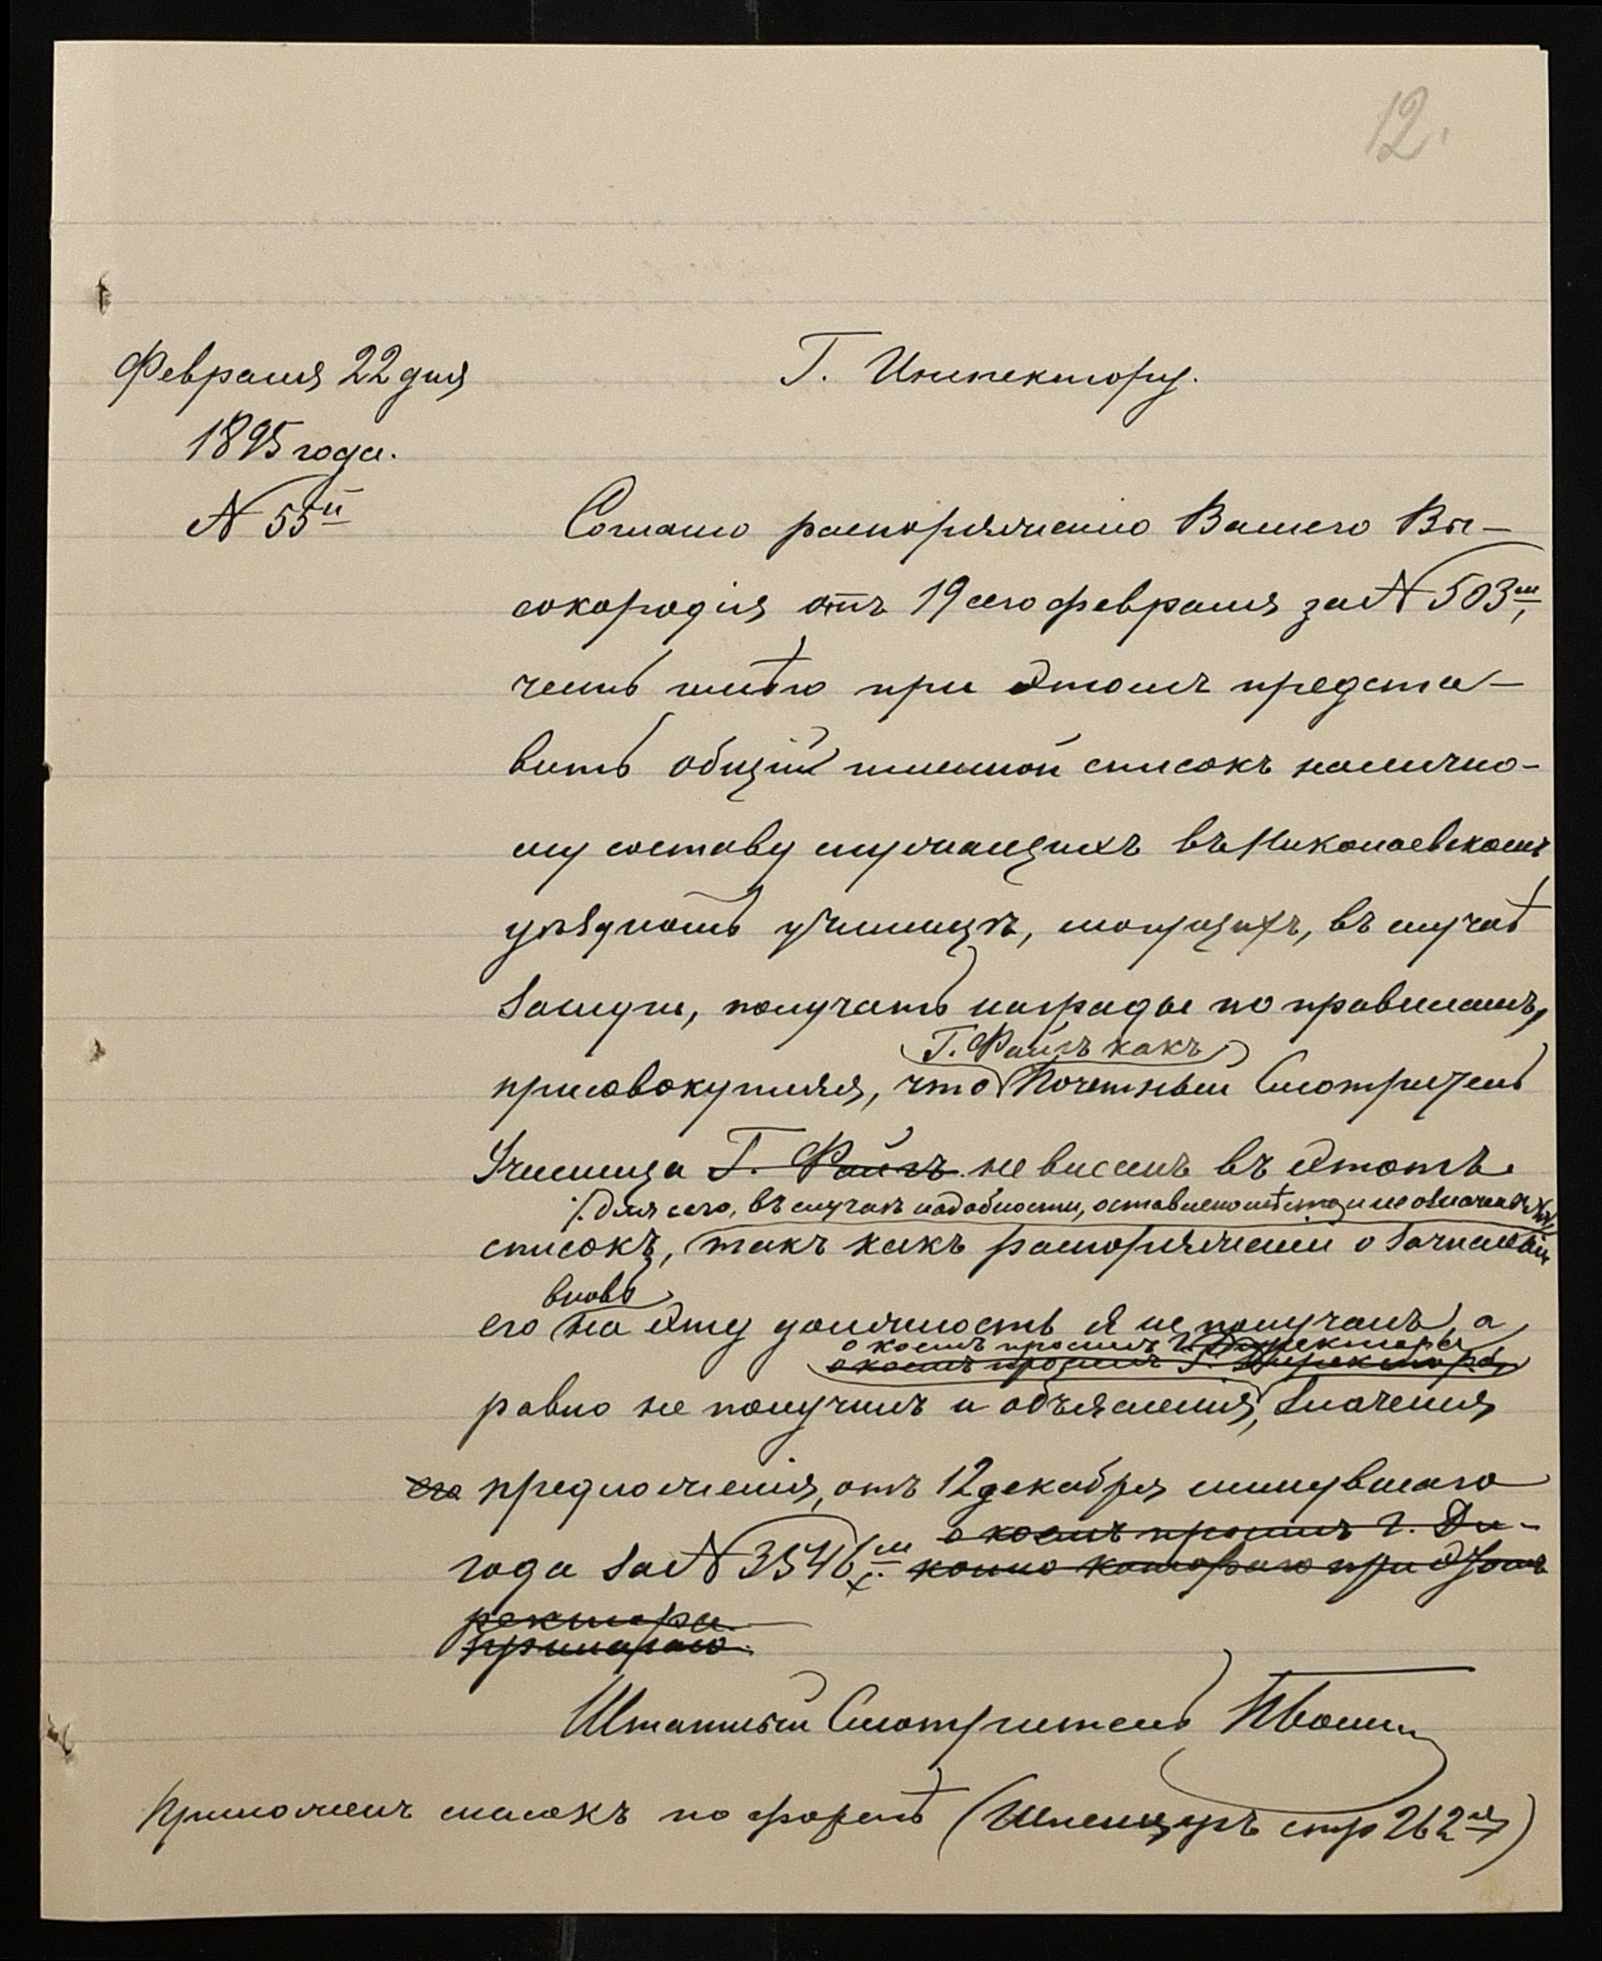 12.
Февраля 22 дня
1895 года.
N 55й
Г. Инспектору.
Согласно распоряженію Вашего Вы-
сокородія отъ 19 сего февраля за N 503м,
честь имѣю при этомъ предста-
вить общій именной списокъ налично-
му составу служащихъ въ Николаевскомъ
уѣздномъ училищѣ, могущихъ, въ случаѣ
заслуги, получать награды по правиламъ,
Г. Файгъ какъ
присовокупляя, что Почетный Смотритель
Училища Г. Файгъ не внесенъ въ этотъ
/. Для сего, въ случаѣ надобности, оставлено мѣсто, и не означенъ
списокъ, такъ какъ распоряженія о зачисленіи
вновь
его на эту должность я не получалъ, а
о коемъ просилъ Г. Директора
о коемъ просилъ Г. Директора,
равно не получилъ и объясненія, значенія
его предложенія, отъ 12 декабря минувшаго
о коемъ просилъ г. Ди-
года за N 3546м. копію котораго при этомъ
ректора.
прилагаю.
Штатный Смотритель
Приложенъ списокъ по формѣ (стр 262я)